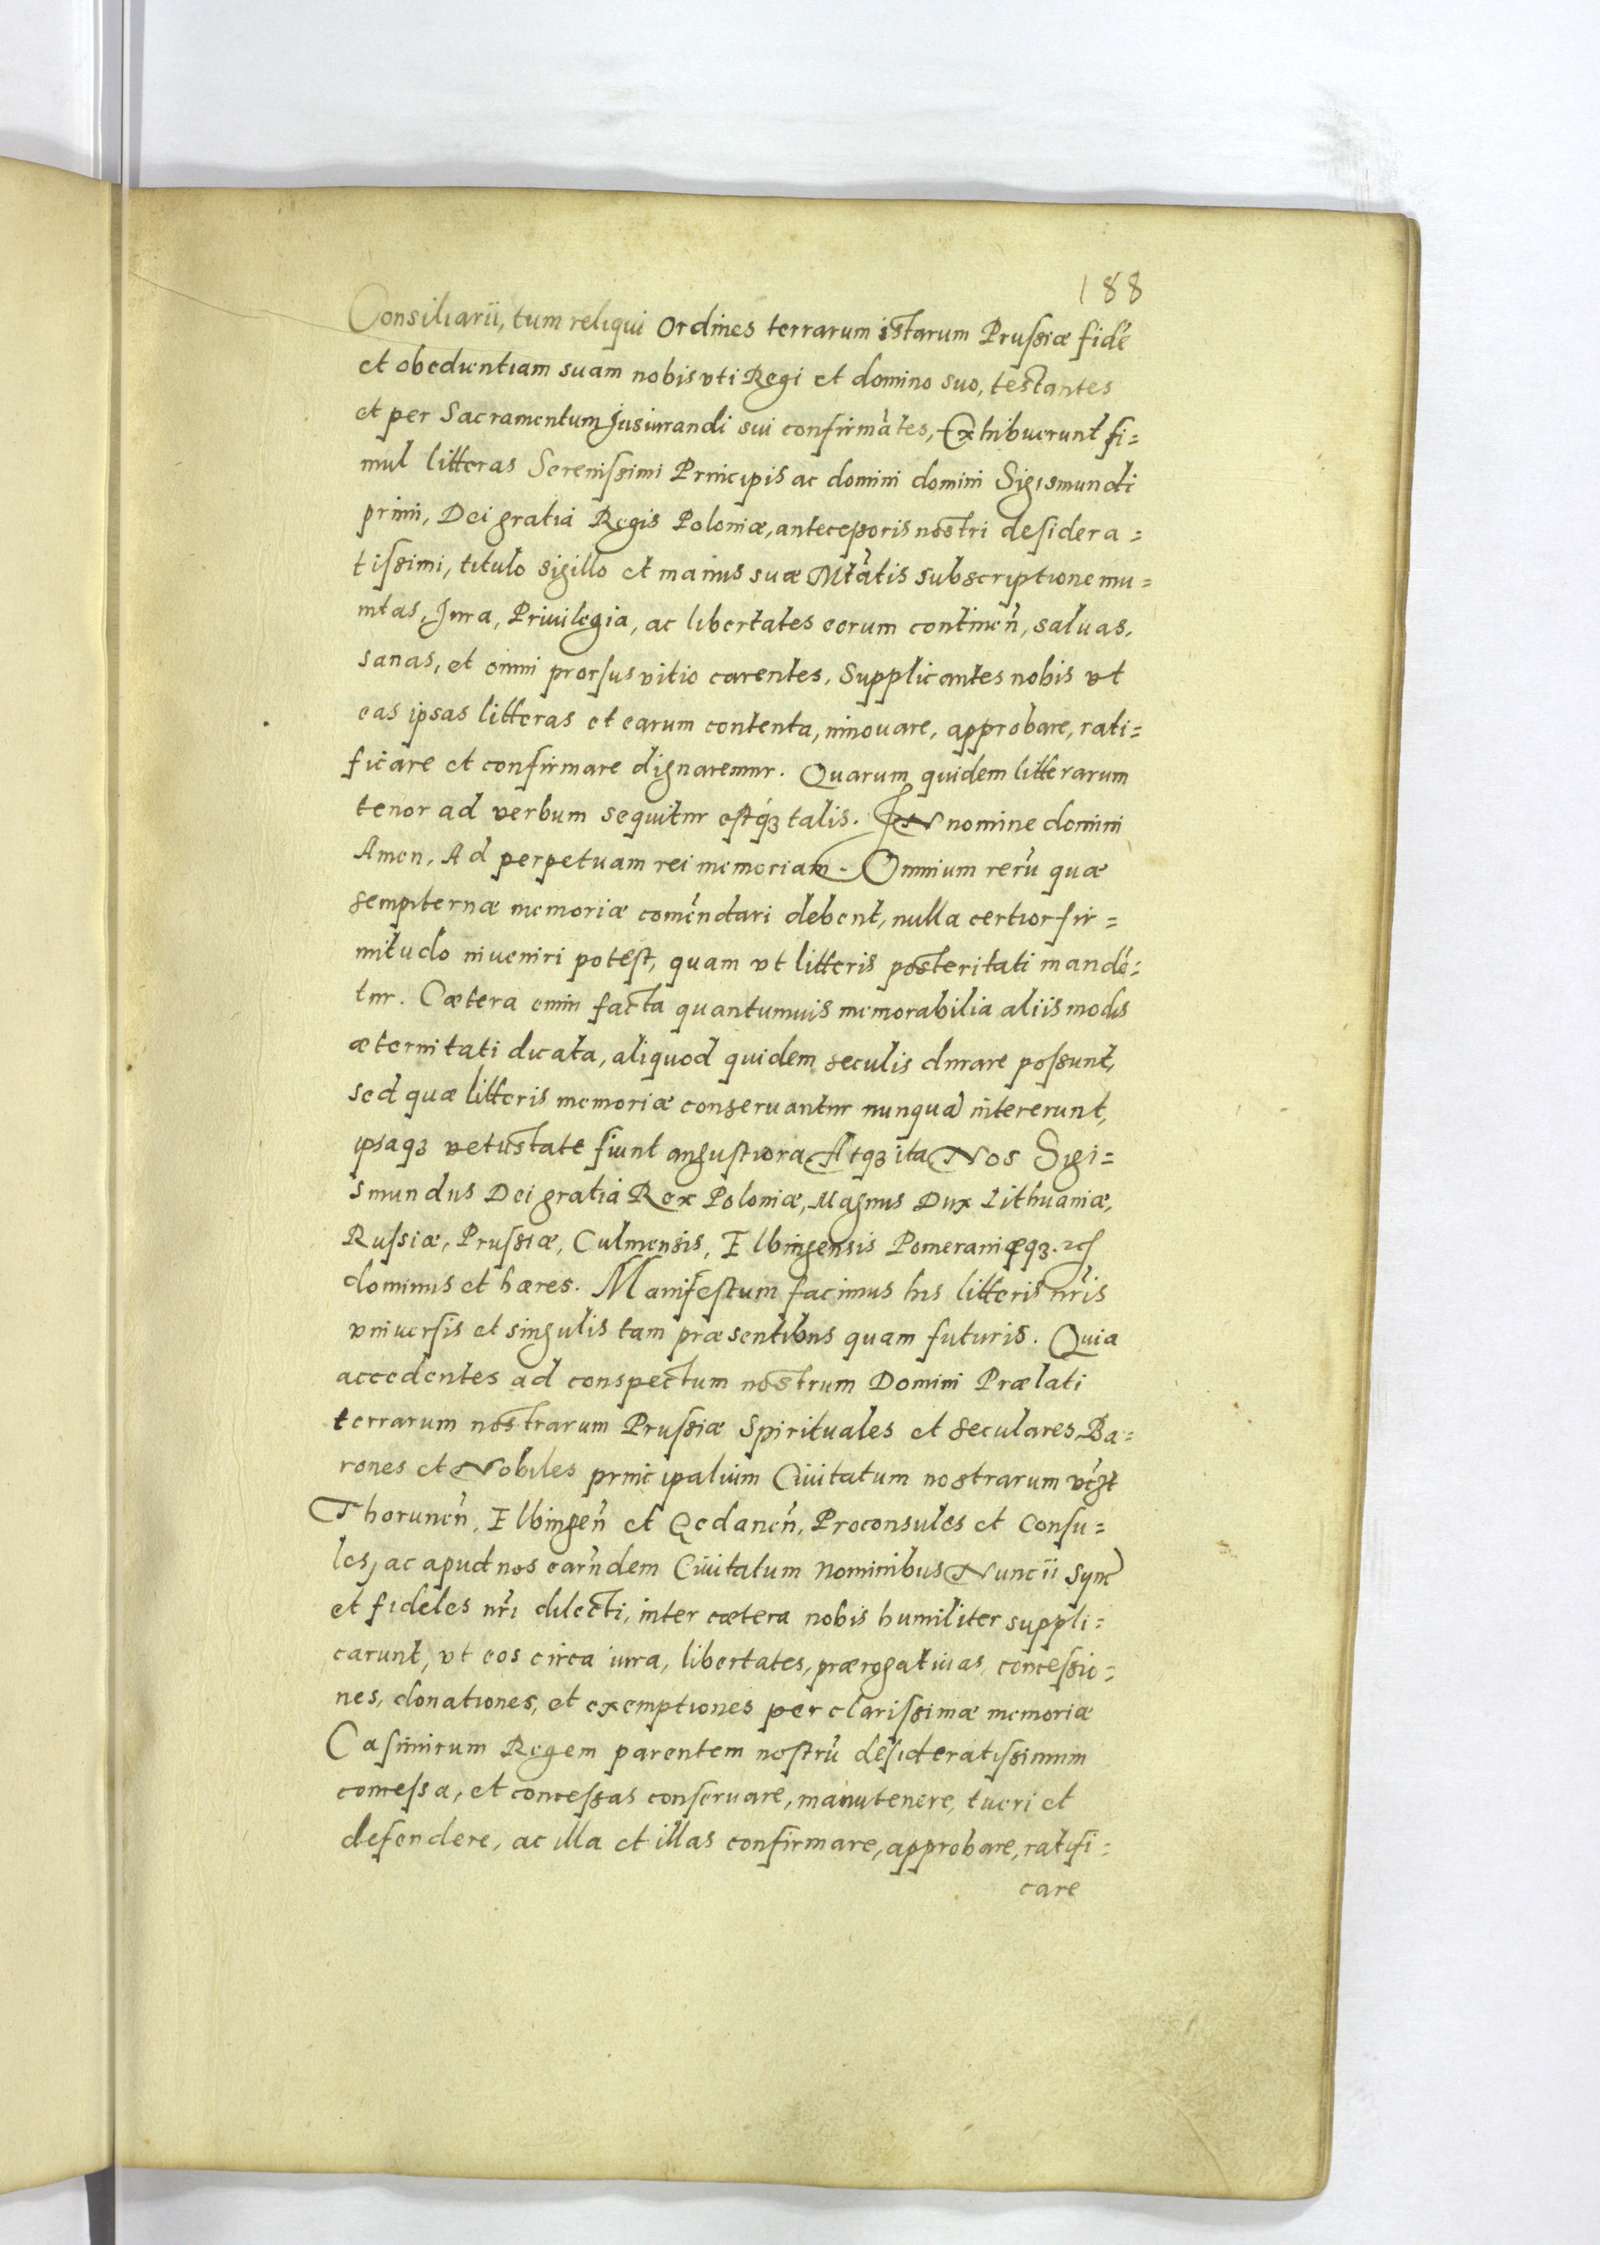 188
Consiliarii, tum reliqui Ordines terrarum istarum Prussiæ fidē
et obedientiam suam nobis vti Regi et domino suo, testantes
et per Sacramentum Jusiurandi sui confirmātes, Exhibuerunt si=
mul litteras Serenissimi Principis ac domini domini Sigismundi
primi, Dei gratiá Regis Poloniæ, antecessoris nostri desidera=
tissimi, titulo sigillo et manus suæ Mtātis subscriptione mu=
nitas, Jura, Priuilegia, ac libertates eorum continen̄, saluas,
sanas, et omni prorsus vitio carentes, Supplicantes nobis vt
eas ipsas litteras et earum contenta, innouare, approbare, rati=
ficare et confirmare dignaremur. Quarum quidem litterarum
tenor ad verbum sequitur estq́ꝫ talis. IN nomine domini
Amen, Ad perpetuam rei memoriam. Omnium rerū quæ
sempiternæ memoriæ comēndari debent, nulla certior fir=
mitudo inueniri potest, quam vt litteris posteritati mandē=
tur. Cætera enim facta quantumuis memorabilia aliis modis
æternitati dicata, aliquod quidem seculis durare possunt,
sed quæ litteris memoriæ conseruantur nunquā intereunt,
ipsaqꝫ vetustate fiunt angustiora Atqꝫ ita Nos Sigi=
smundus Dei gratiá Rex Poloniæ, Magnus Dux Lithuaniæ,
Russiæ, Prussiæ, Culmensis, Elbingensis Pomeraniæqꝫ. ꝛc
dominus et hæres. Manifestum facimus his litteris nr̄is
vniuersis et singulis tam præsentibus quam futuris. Quia
accedentes ad conspectum nostrum Domini Prælati
terrarum nostrarum Prussiæ Spirituales et seculares, Ba=
rones et Nobiles principalium Ciuitatum nostrarum vꝫt
Thorunen̄, Elbingen̄ et Gedanen̄, Proconsules et Consu=
les, ac apud nos earūdem Ciuitatum Nominibus Nuncii Sync̄
et fideles nr̄i dilecti, inter cætera nobis humiliter suppli=
carunt, vt eos circa iura, libertates, prærogatiuas, concessio=
nes, donationes, et exemptiones per clarissimæ memoriæ
Casimirum Regem parentem nostrū desideratissimum
concessa, et concessas conseruare, manutenere, tueri et
defendere, ac illa et illas confirmare, approbare, ratifi=
care